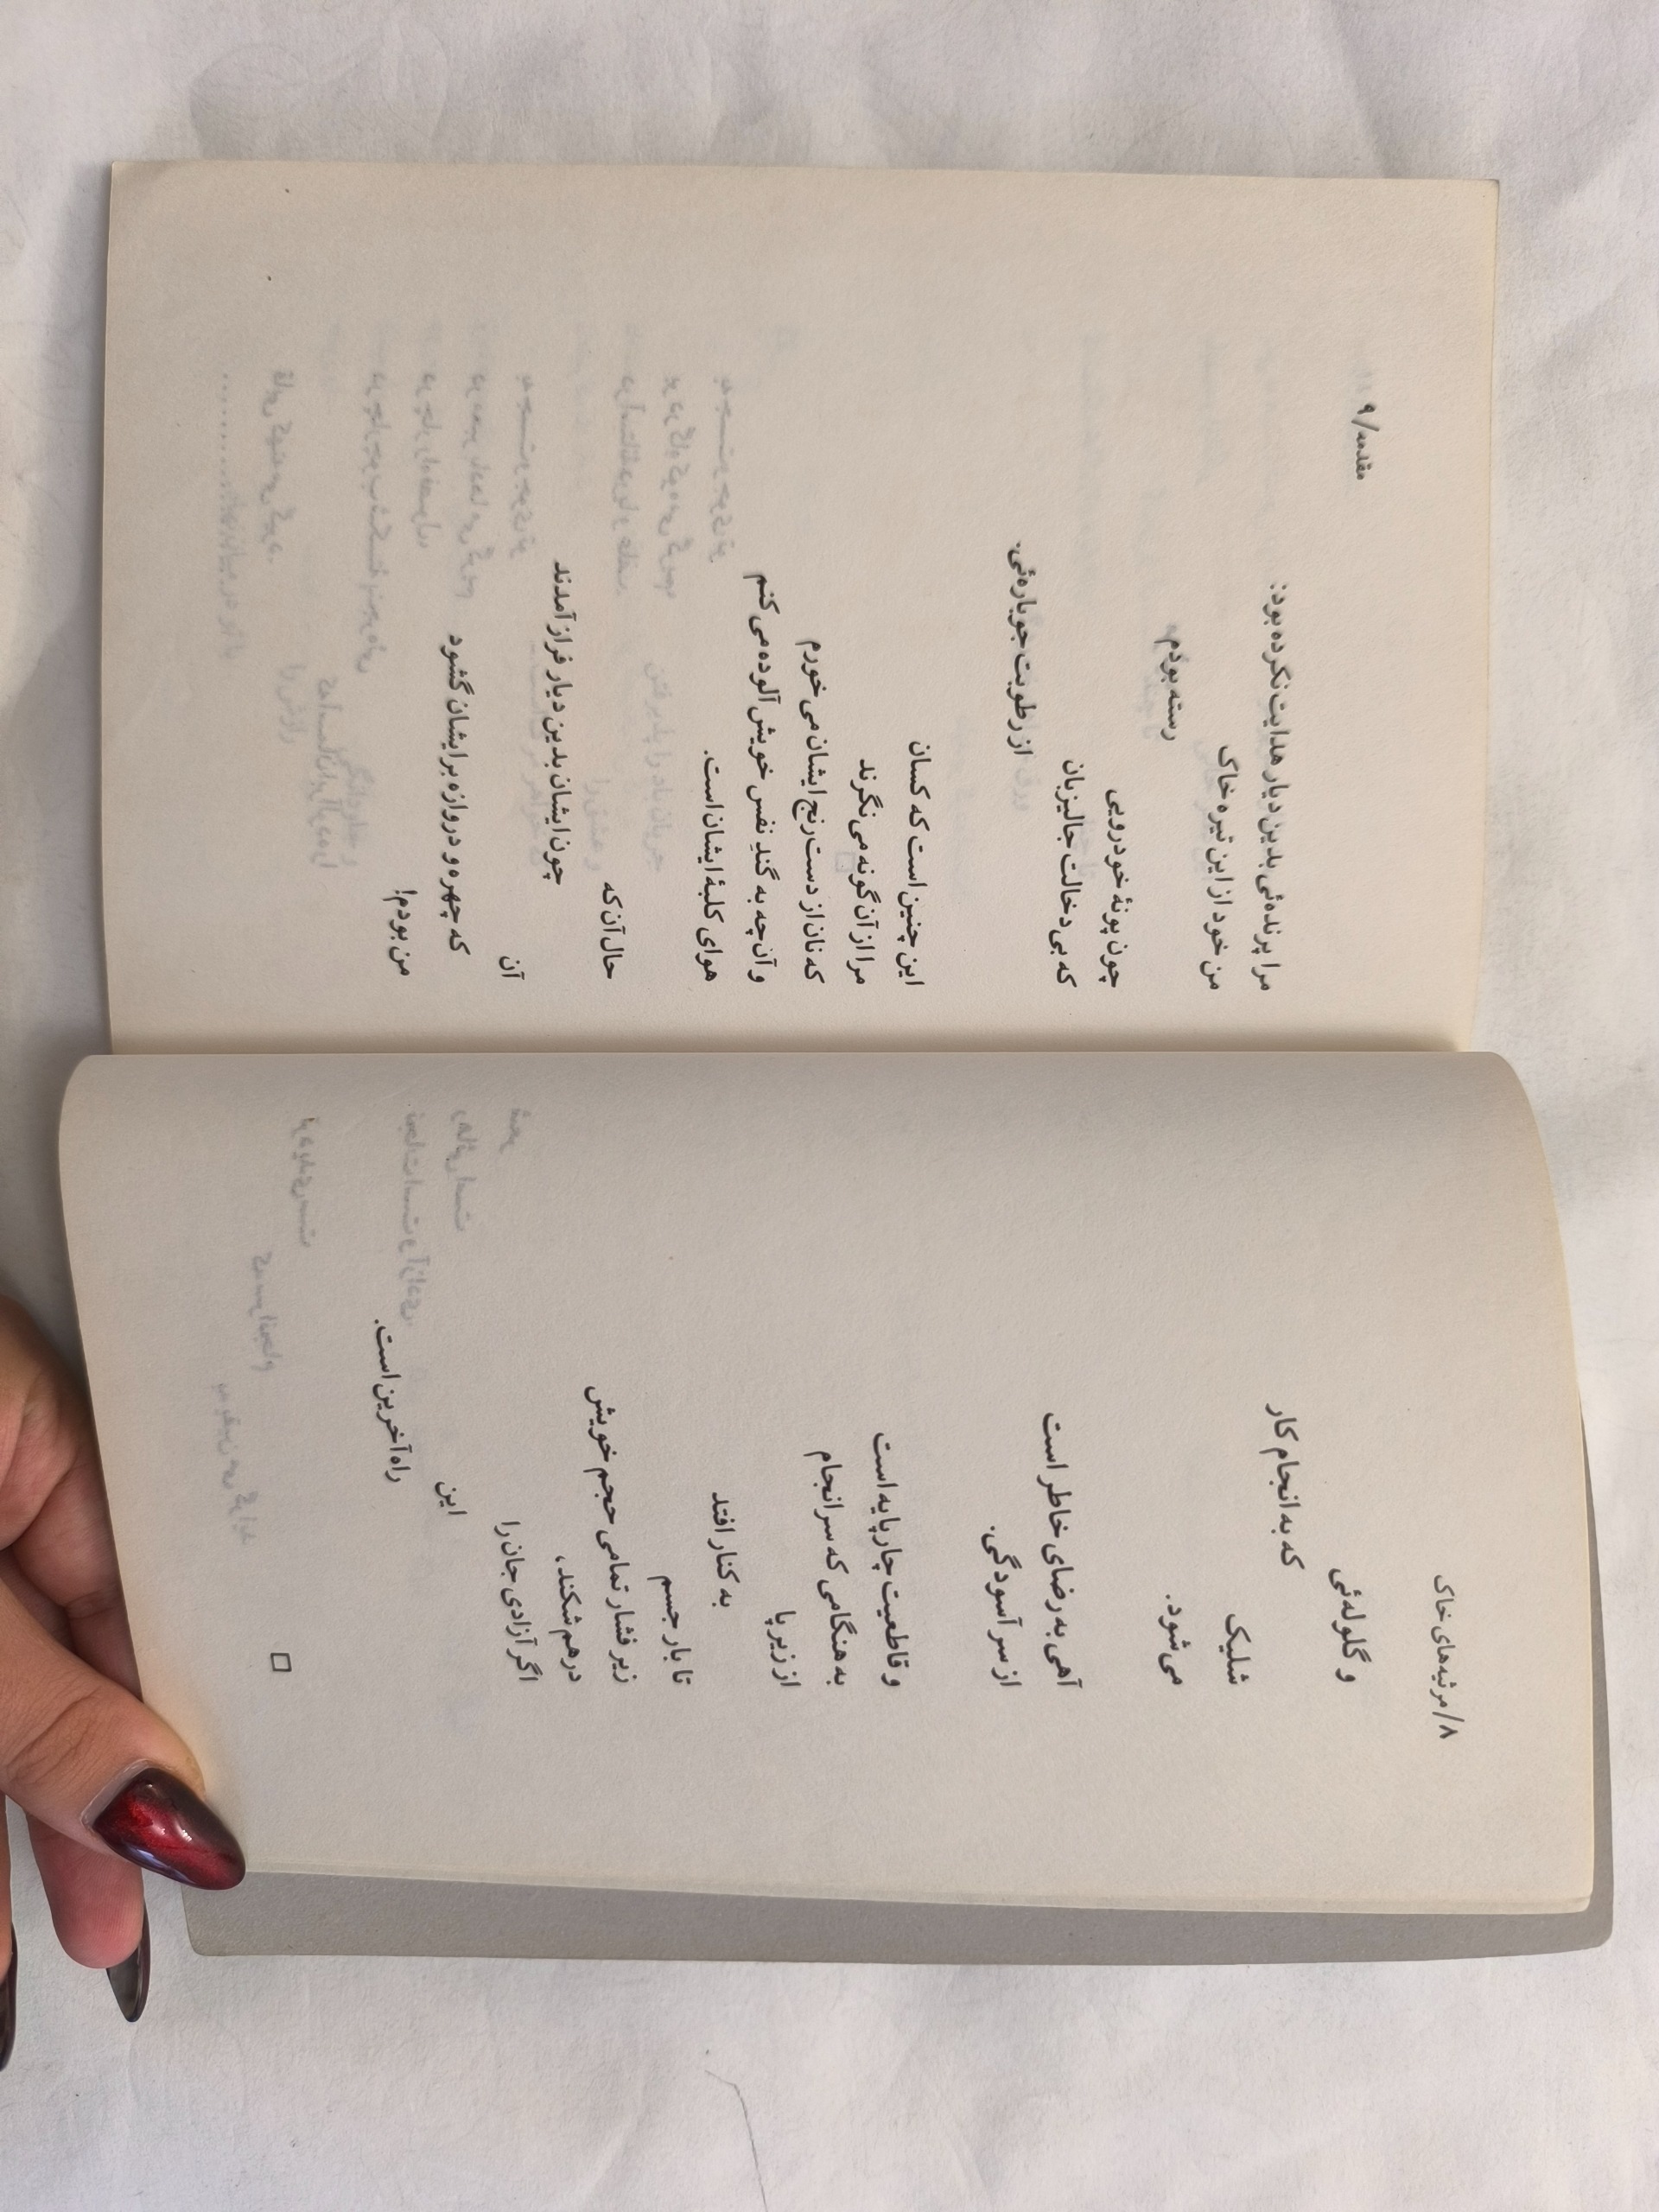 ۸/مرثیه‌های خاک
و گلوله‌ئی
که به انجام کار
شلیک
می‌شود.
آهی به رضای خاطر است
از سر آسودگی.
و قاطعیت چارپایه است
به هنگامی که سرانجام
از زیر پا
به کنار افتد
تا بار جسم
زیر فشار تمامی حجم خویش
درهم شکند،
اگر آزادی جان را
این
راه آخرین است.
مقدمه/۹
مرا پرنده‌ئی بدین دیار هدایت نکرده بود:
من خود از این تیره خاک
رسته بودم
چون پونهٔ خودرویی
که بی‌دخالت جالیزبان
از رطوبت جوباره‌ئی.
این چنین است که کسان
مرا از آن گونه می‌نگرند
که نان از دست رنج ایشان می‌خورم
و آن چه به گندِ نفس خویش آلوده می‌کنم
هوای کلبهٔ ایشان است.
حال آن که
چون ایشان بدین دیار فراز آمدند
آن
که چهره و دروازه بر ایشان گشود
من بودم!